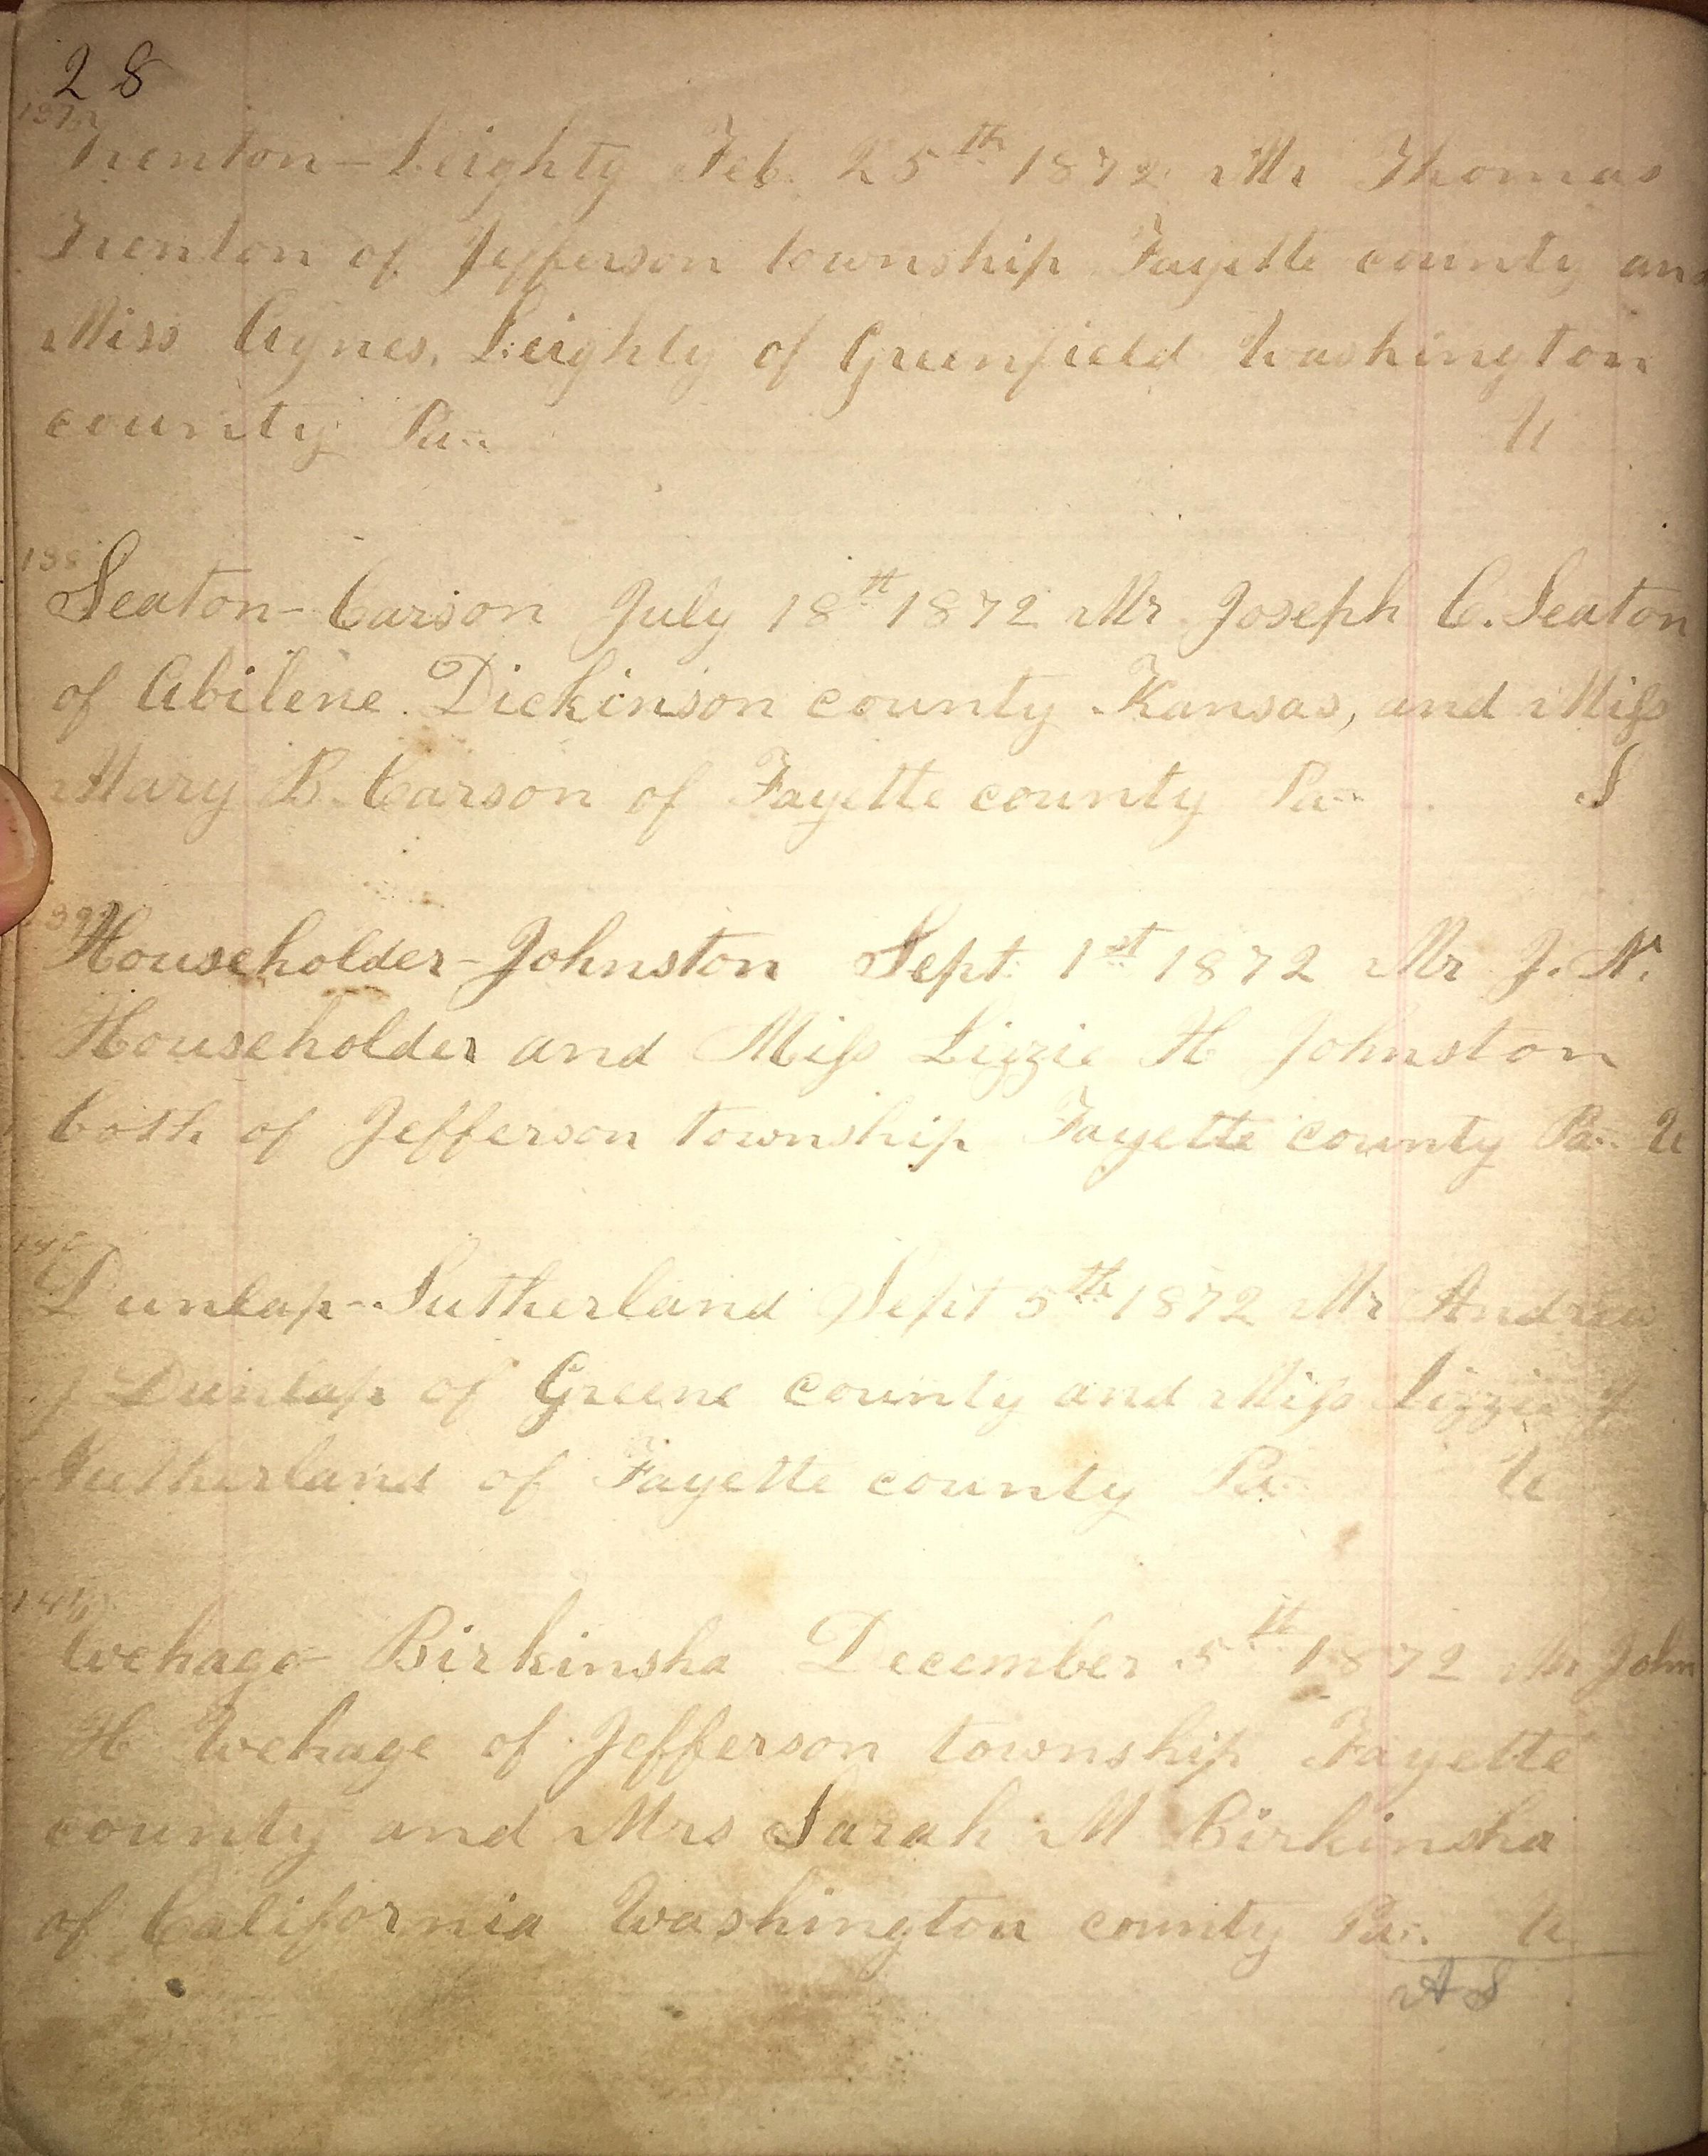 28
137
Trenton - Leighty Feb. 25th 1872 Mr Thomas
Trenton of Jefferson township Fayette county and
Miss Agnes. Leighty of Greenfield Washington
county Pa.. U
138
Seaton - Carson July 18th 1872 Mr. Joseph C. Seaton
of Abilene. Dickinson county Kansas, and Miss
Mary B. Carson of Fayette county Pa.. S
139
Householder - Johnston Sept. 1st 1872 Mr J. N.
Householder and Miss Lizzie H Johnston
both of Jefferson township Fayette county Pa.. U
140
Dunlap - Sutherland Sept 5th 1872 Mr Andrew
J Dunlap of Greene county and Miss Lizzie J
Sutherland of Fayette county Pa.. U
141
Wehage - Birkinsha December 5th 1872 Mr John
H Wehage of Jefferson township Fayette
county and Mrs Sarah M Birkinsha
of California Washington county Pa.. U
A S